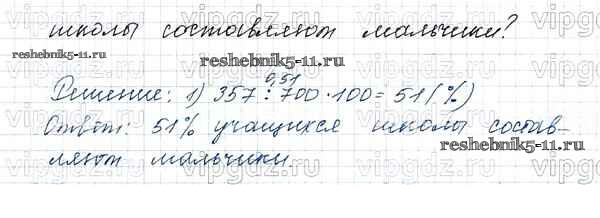 школы составляют мальчики?
reshebnik5-11.ru
reshebnik5-11.ru
0,51
Решение: 1) 357 : 700 · 100 = 51 (%)
Ответ: 51% учащихся школы состав-
reshebnik5-11.ru
ляют мальчики.